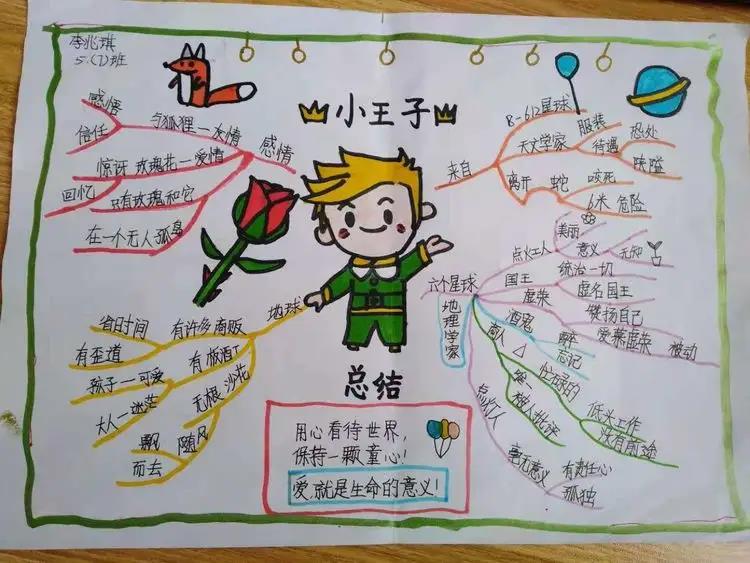 李兆琪
5.(1)班
小王子
感情
与狐狸一友情
感悟
信任
玫瑰花一爱情
惊讶
只有玫瑰和它
回忆
在一个无人孤岛
来自
B-612星球
天文学家
服装
待遇
恐处
陕隘
离开
蛇
咬死
6米
危险
六个星球
点火工人
美丽
意义
无知
国王
统治一切
虚名国王
虚荣
赞扬自己
爱慕虚荣
被动
酒鬼
忘记
商人
忙碌的
被人批评
低头工作
没有前途
点灯人
毫无意义
有责任心
孤独
地理学家
地球
有许多商贩
省时间
有扳道工
有歪道
孩子一可爱
大人一迷茫
沙花
无根
随风
飘
而去
总结
用心看待世界,
保持一颗童心!
爱,就是生命的意义!